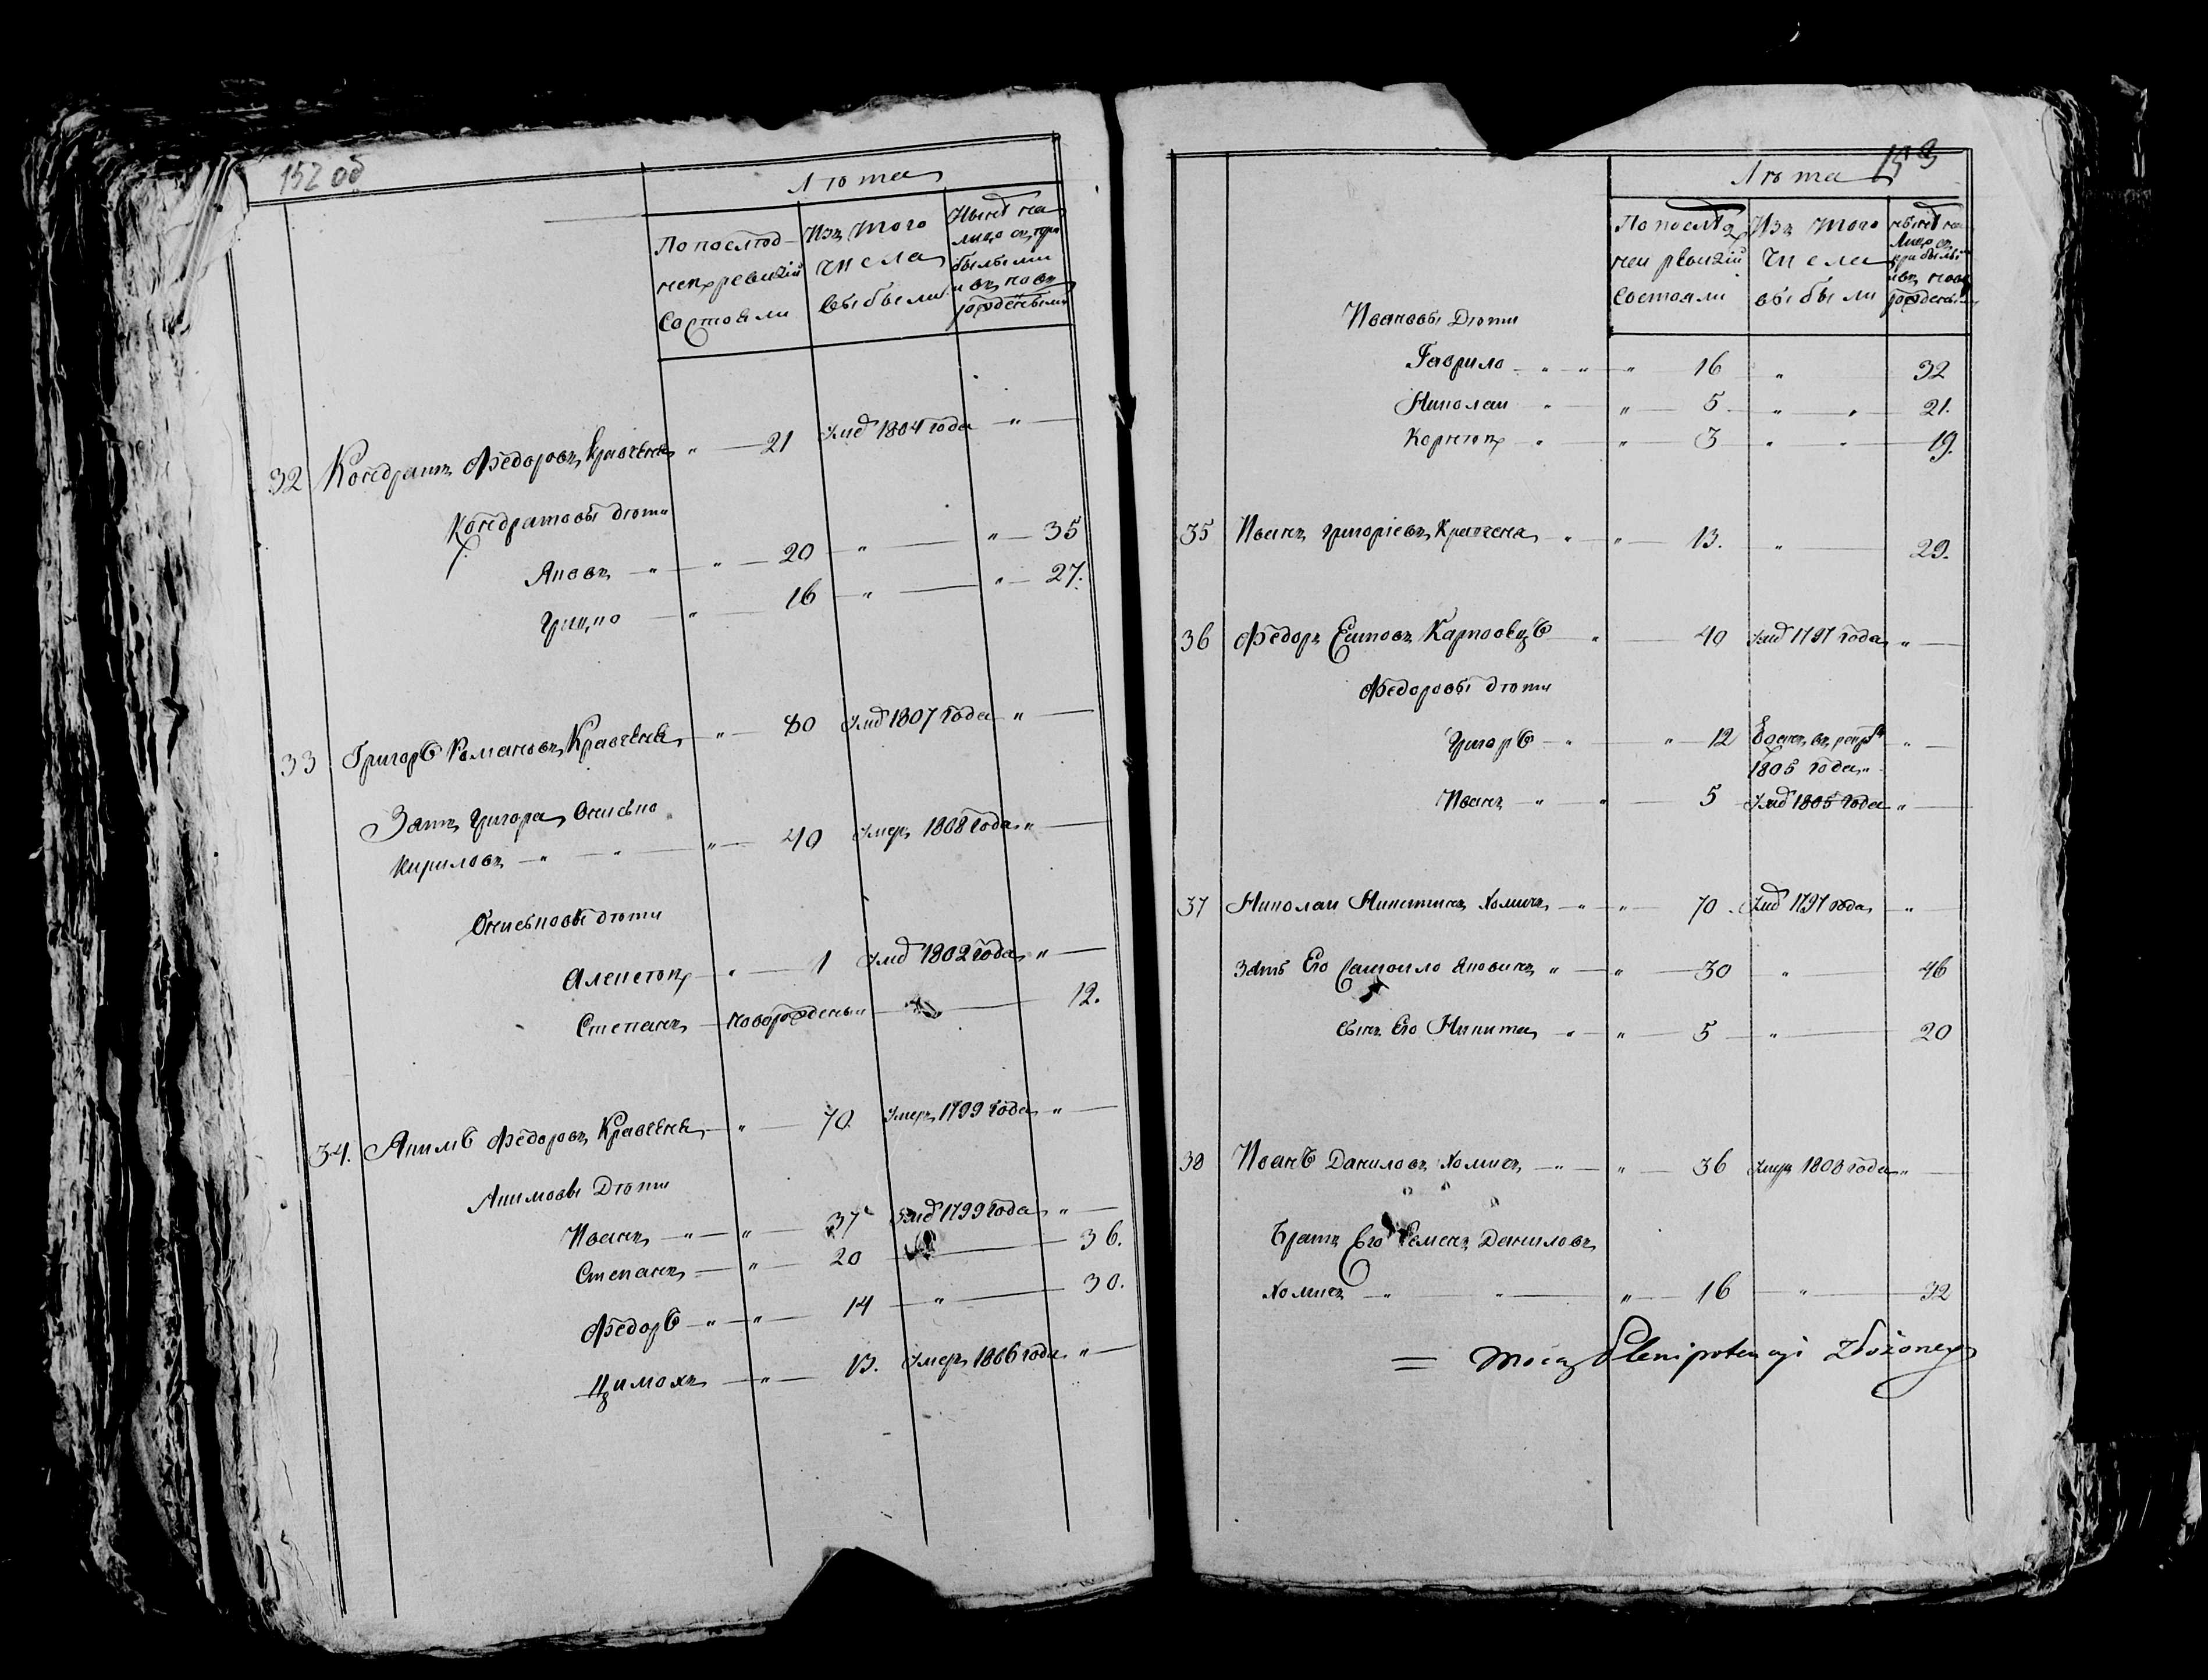 152 об
Лѣта
По послѣд-
ней ревизіи
Состояли
Изъ того
числа
выбыли
Нынѣ на
лицо съ при
былыми
и въ новь
рождеными
32 Кондратъ Федоровъ Кравченя „ — 21 умѣ 1804 года „ —
Кондратовы дѣти
Яковъ — „ — „ — 20 — „ — „ — 35
Грицко — „ — 16 — „ — „ — 27.
33 Григорѣ Романовъ Кравченя „ — 80 умѣ 1807 года „ —
Зать Григора, Онисько
Кириловъ — „ — „ — „ — 40 умеръ 1808 года „ —
Ониськовы дѣти
Алексѣй — „ — 1 умѣ 1802 года „ —
Степанъ — новорожденый — 12.
34. Якимѣ Федоровъ Кравченя — „ — 70. умеръ 1799 года „ —
Якимовы Дѣти
Иванъ — „ — „ — 37 умѣ 1799 года „ —
Степанъ — „ — 20 — 36.
Федорѣ — „ — „ — 14 — „ — 30.
Цимохъ — „ — 13. умеръ 1806 года „ —
153
Лѣта
По послѣд
ней ревизіи
Состояли
Изъ того
числа
выбыли
нынѣ на
Лицо съ
при былы
и въ новь
рожденым
Ивановы Дѣти
Гаврило — „ — „ — „ 16 „ 32
Николай „ — „ — 5 — „ — „ — 21.
Корнѣй „ — „ — 3 — „ — „ — 19.
35 Иванъ Григоріевъ Кравченя — „ — „ — 13. „ — 29.
36 Федоръ Ешповъ Карповецѣ — „ — 40 умѣ 1797 года „ —
Федоровы дѣти
Григорѣ — „ — „ — 12 Зданъ въ рекр „ —
1805 года „
Иванъ — „ — „ — 5 умѣ 1805 года „ —
37 Николай Никитинъ Хомичъ — „ — „ — 70. умѣ 1797 года „ —
Зать Его Самойло Яковичъ „ — „ — 30 „ — 46
сынъ Его Никита „ — „ — 5 — „ — 20
38 Иванѣ Даниловъ Хомичъ — „ — „ — 36 умеръ 1808 года „ —
Братъ Его Семенъ Даниловъ
Хомичъ — „ — „ — „ — 16 — „ — 32
= Mocą Plenipotencyi Złożoney